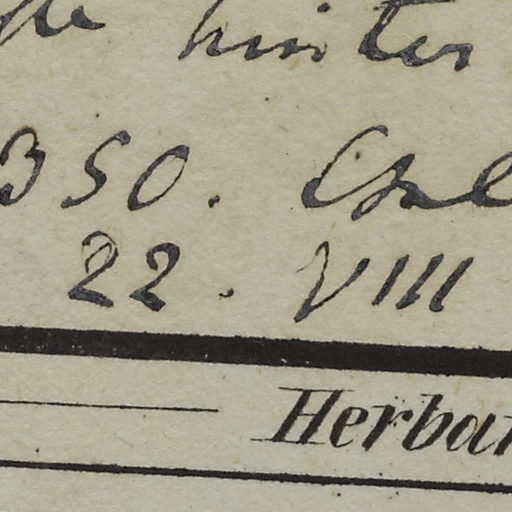 hinter
350.
22. VIII
Herbar